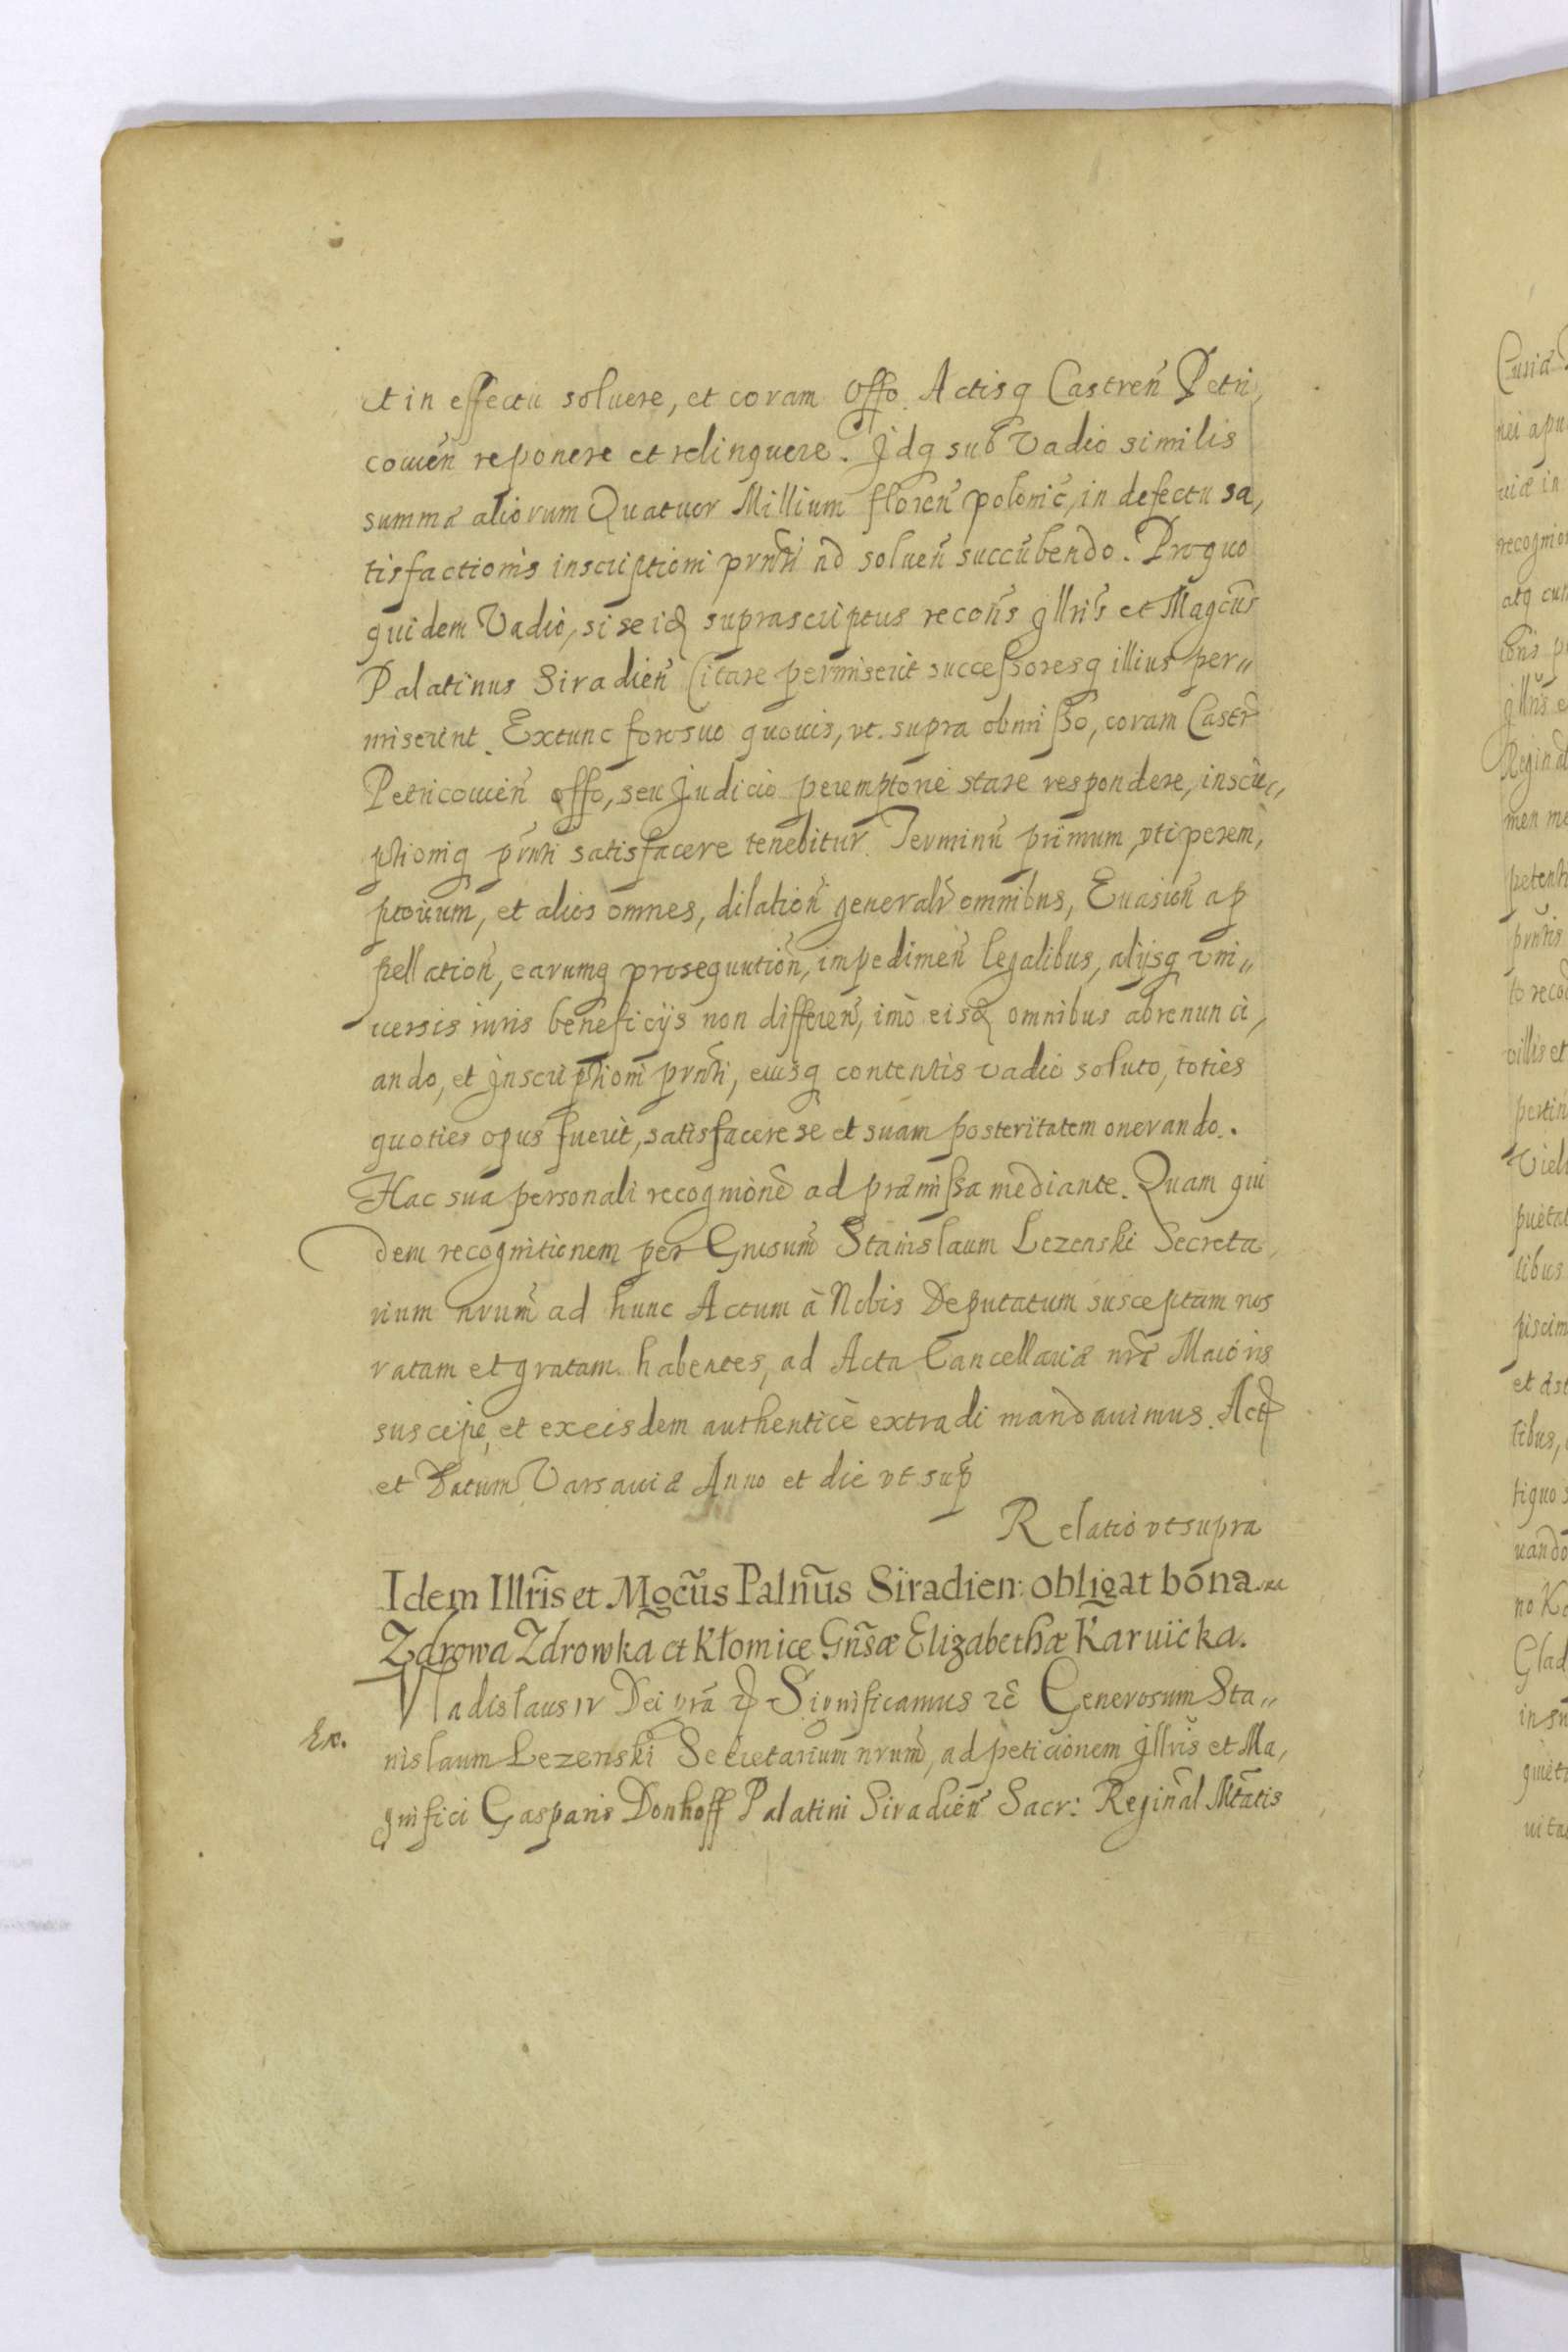 et in effectu soluere, et coram Offo Actisq Castren̄ Petri,
couien̄ reponere et relinquere. Idq sub Vadio similis
summæ aliorum Quatuor Millium floren̄ polonic̄, in defectu sa,
tisfactionis inscriptioni prn̄ti nō soluen̄ succūbendo. Pro quo
quidem Vadio, si se idē suprascriptus recon̄s Illris et Magcūs
Palatinus Siradien̄ Citare permiserit successoresq illius per„
miserint. Extunc foro suo quouis, vt supra obmisso, coram Castr̄
Petricouien̄ offo, seu Judicio peremptoriè stare respondere, inscri„
ptioniq prn̄ti satisfacere tenebitur. Terminū primum, vti perem,
ptorium, et alios omnes, dilation̄ generalr̄ omnibus, Euasion̄ ap
pellation̄, earumq prosequution̄, impedimen̄ legalibus, alijsq vni„
uersis iuris beneficijs non differen̄, imò eisdē omnibus abrenunci,
ando, et Inscriptioni prn̄ti, eiusq contentis vadio soluto, toties
quoties opus fuerit, satisfacere se et suam posteritatem onerando.
Hac sua personali recognione ad præmissa mediante. Quam qui
dem recognitionem per Gnrsum̄ Stanislaum Lezenski Secreta,
rium nrum̄ ad hunc Actum à Nobis Deputatum susceptam nos
ratam et gratam habentes, ad Acta Cancellariæ nræ Maioris
suscipi, et ex eisdem authenticè extradi mandauimus. Act
et Datum Varsauiæ Anno et die vt sup
Relatio vt supra
Idem Illr̄is et Mgcūs Palnūs Siradien: obligat bona
Zdrowa Zdrowka et Kłomice Gn̄sæ Elizabethæ Karuicka.
Vladislaus IV Dei gra Significamus Generosum Sta„
Ex.
nislaum Lezenski Secretarium nrum̄, ad peticionem Illris et Ma,
gnifici Gasparis Donhoff Palatini Siradien̄ Sacr: Reginal Mtatis